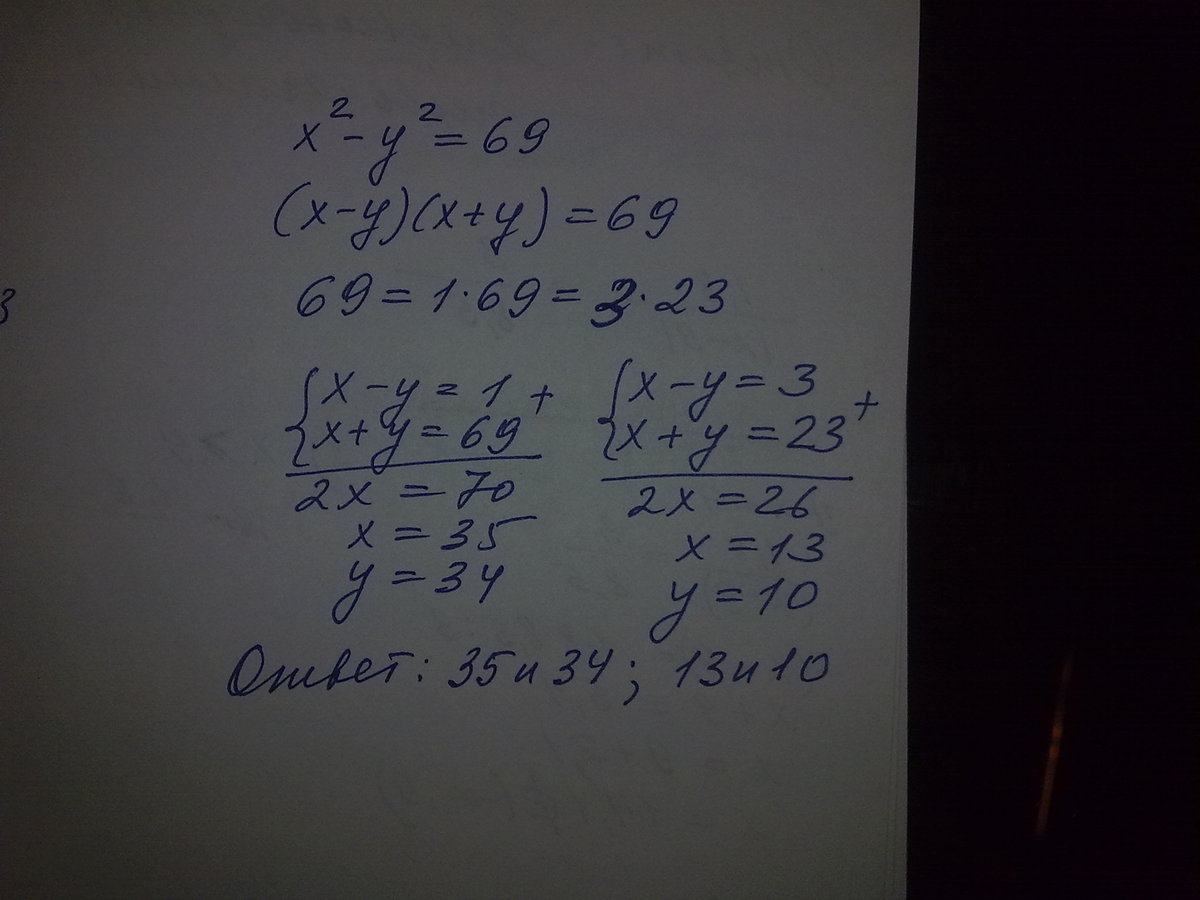 x² - y² = 69
(x-y)(x+y) = 69
69 = 1·69 = 3·23
{x - y = 1 +
x + y = 69
2x = 70
x = 35
y = 34
{x - y = 3 +
x + y = 23
2x = 26
x = 13
y = 10
Ответ: 35 и 34; 13 и 10
3